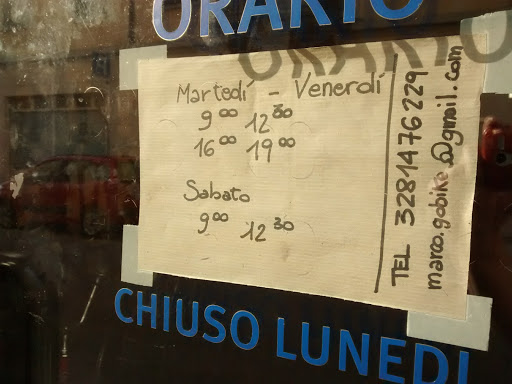 ORARIO
Martedí - Venerdí
9⁰⁰ 12³⁰
16⁰⁰ 19⁰⁰
Sabato
9⁰⁰ 12³⁰
TEL 3281476229
marco.gobike@gmail.com
CHIUSO LUNEDI